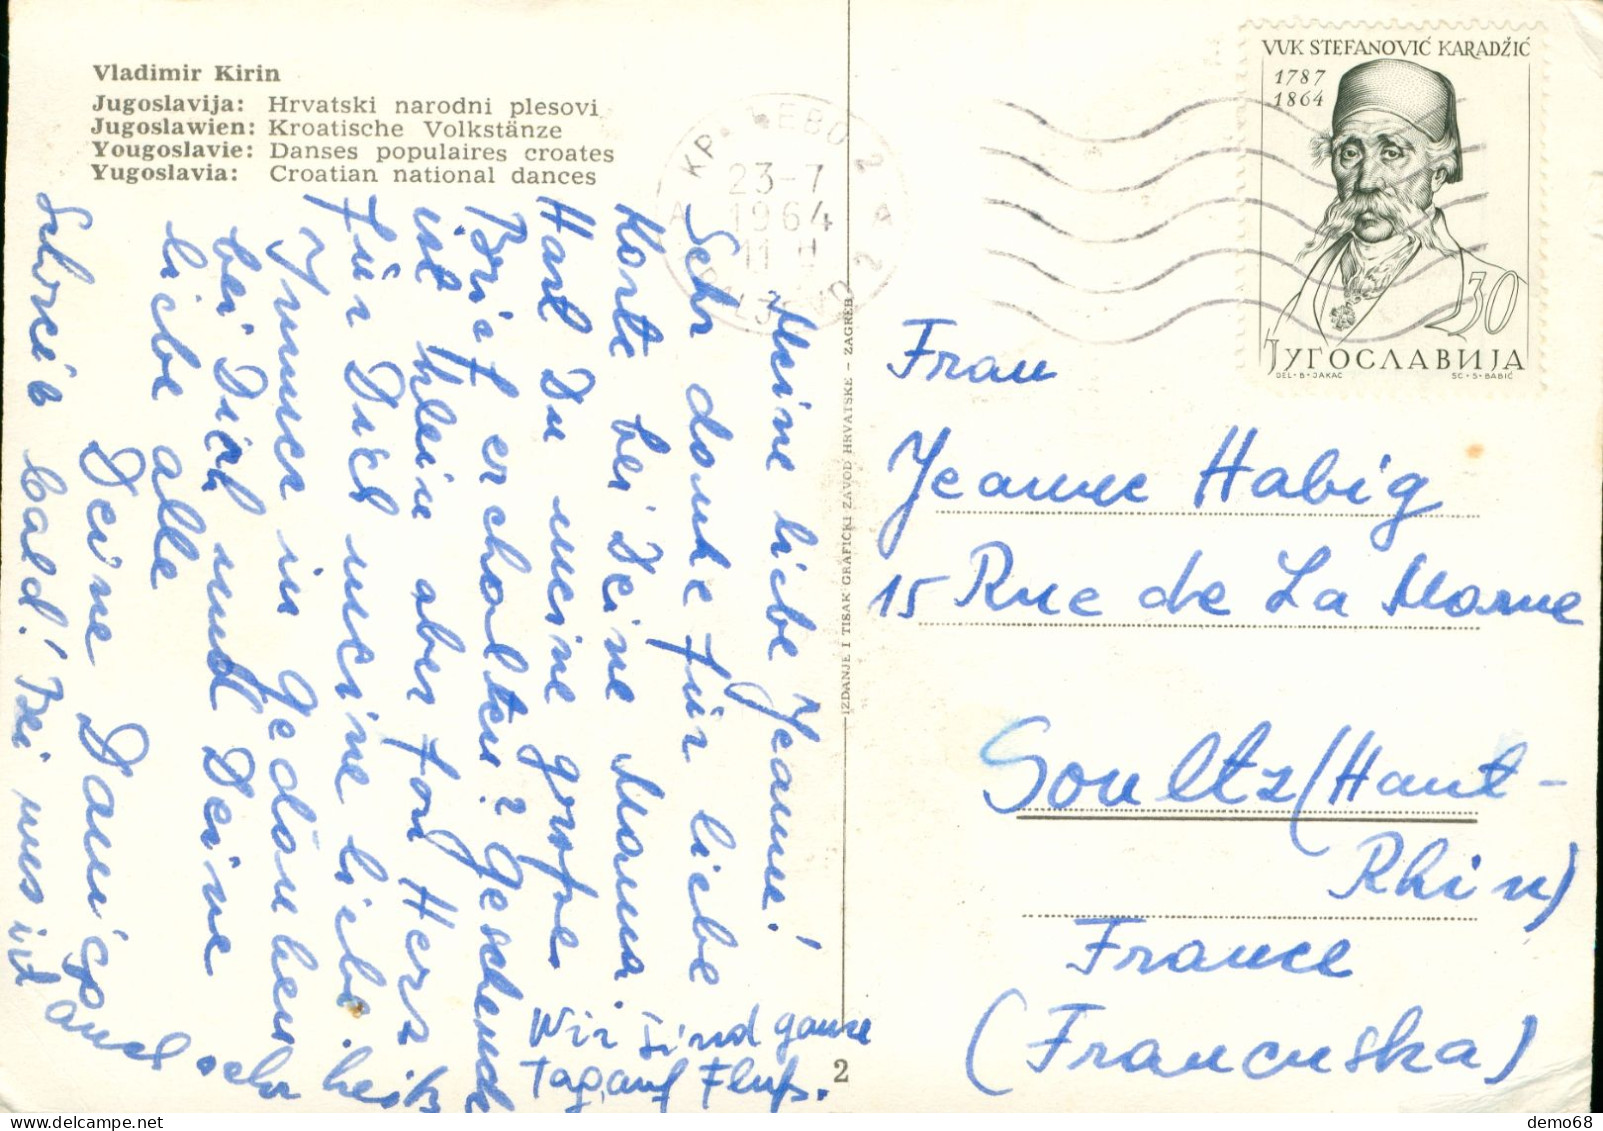 Vladimir Kirin
Jugoslavija: Hrvatski narodni plesovi
Jugoslawien: Kroatische Volkstänze
Yougoslavie: Danses populaires croates
Yugoslavia: Croatian national dances
23-7
1964
11
VUK STEFANOVIĆ KARADŽIĆ
1787
1864
30
ЈУГОСЛАВИЈА
DEL·B·JAKAC SC·S·BABIĆ
Meine liebe Jeanne!
Sehr danke für liebe
Korte bei Deine Mama.
Hast Du meine große
Brief erchalten? Geschenk
ist kleine aber fon Herz
für Dich meine liebe.
Immer in Gedänken
bei Dich und Deine
liebe alle
Deine Danica
Schreib bald! Bei uns ist auch sehr heiß
Wir sind ganze
Tag auf Fluß.
IZDANJE I TISAK GRAFIČKI ZAVOD HRVATSKE - ZAGREB
2
Frau
Jeanne Habig
15 Rue de La Marne
Soultz (Haut-
Rhin)
France
(Francuska)
demo68